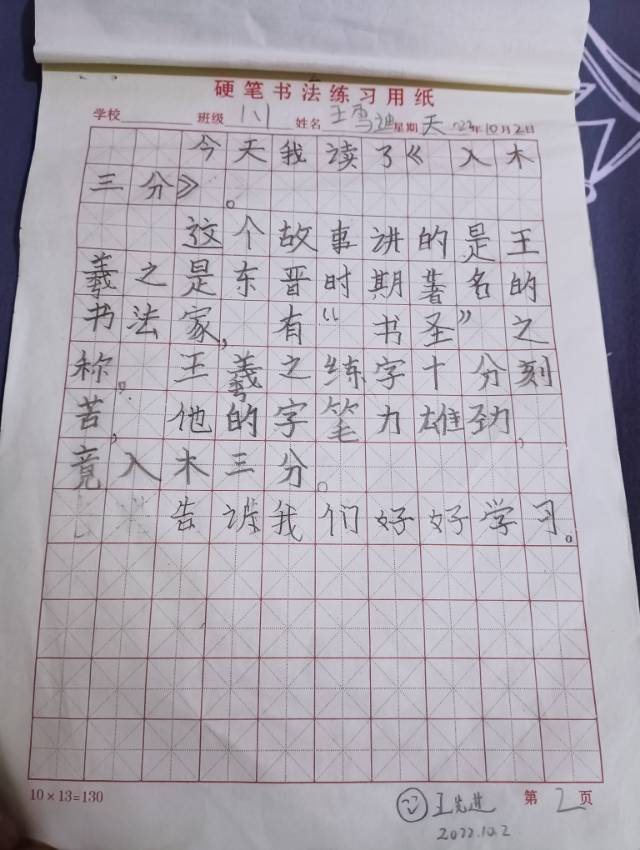 硬笔书法练习用纸
学校 班级 1八1 姓名 王雪迪 星期 天 22年10月2日
今天我读了《入木
三分》。
这个故事讲的是王
羲之是东晋时期著名的
书法家，有“书圣”之
称。王羲之练字十分刻
苦，他的字笔力雄劲，
竟入木三分。
告诉我们好好学习。
10×13=130
王先进
第2页
2022.10.2